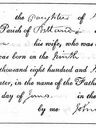 the Daughter of
Parish of Portland
his wife, who was
was born on the tenth
thousand eight hundred and
ster, in the name of the Father
day of June in the
by me John